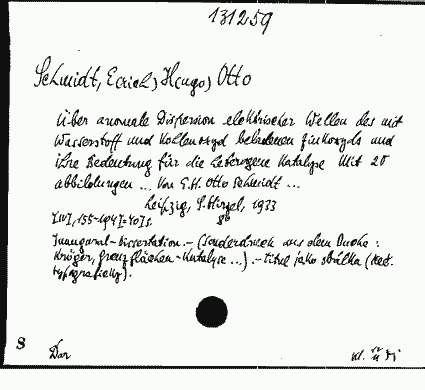 131259
Schmidt, E(rich) H(ugo) Otto
Über anomale Dispersion elektrischer Wellen des mit
Wasserstoff und Kohlenoxyd beladenen Zinkoxyds und
ihre Bedeutung für die heterogene Katalyse Mit 20
abbildungen ... Von E.H. Otto Schmidt ...
Leipzig, S. Hirzel, 1933
8°
Inaugural-Dissertation. - (Sonderdruck aus dem Buche :
Kröger, Grenzflächen-Katalyse ...) .- titul jako obálka (
8
Dar